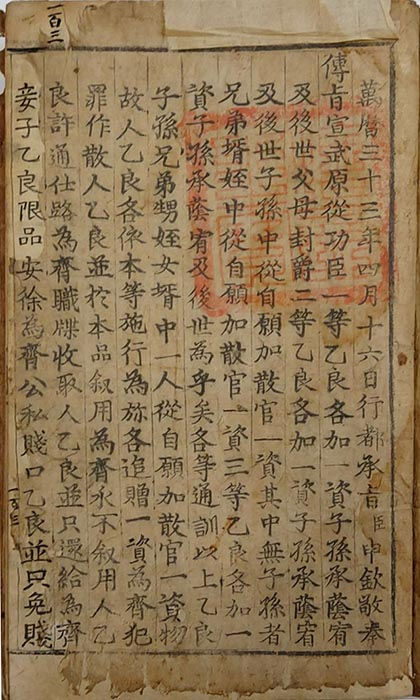 萬曆三十三年四月十六日行都承旨臣申欽敬奉
傳旨宣武原從功臣一等乙良各加一資子孫承蔭宥
及後世父母封爵二等乙良各加一資子孫承蔭宥
及後世子孫中從自願加散官一資其中無子孫者
兄弟壻姪中從自願加散官一資三等乙良各加一
資子孫承蔭宥及後世為乎矣各等通訓以上乙良
子孫兄弟甥姪女壻中一人從自願加散官一資物
故人乙良各依本等施行為旀各追贈一資為齊犯
罪作散人乙良並於本品叙用為齊永不叙用人乙
良許通仕路為齊職牒收取人乙良並只還給為齊
妾子乙良限品安徐為齊公私賤口乙良並只免賤
一百三